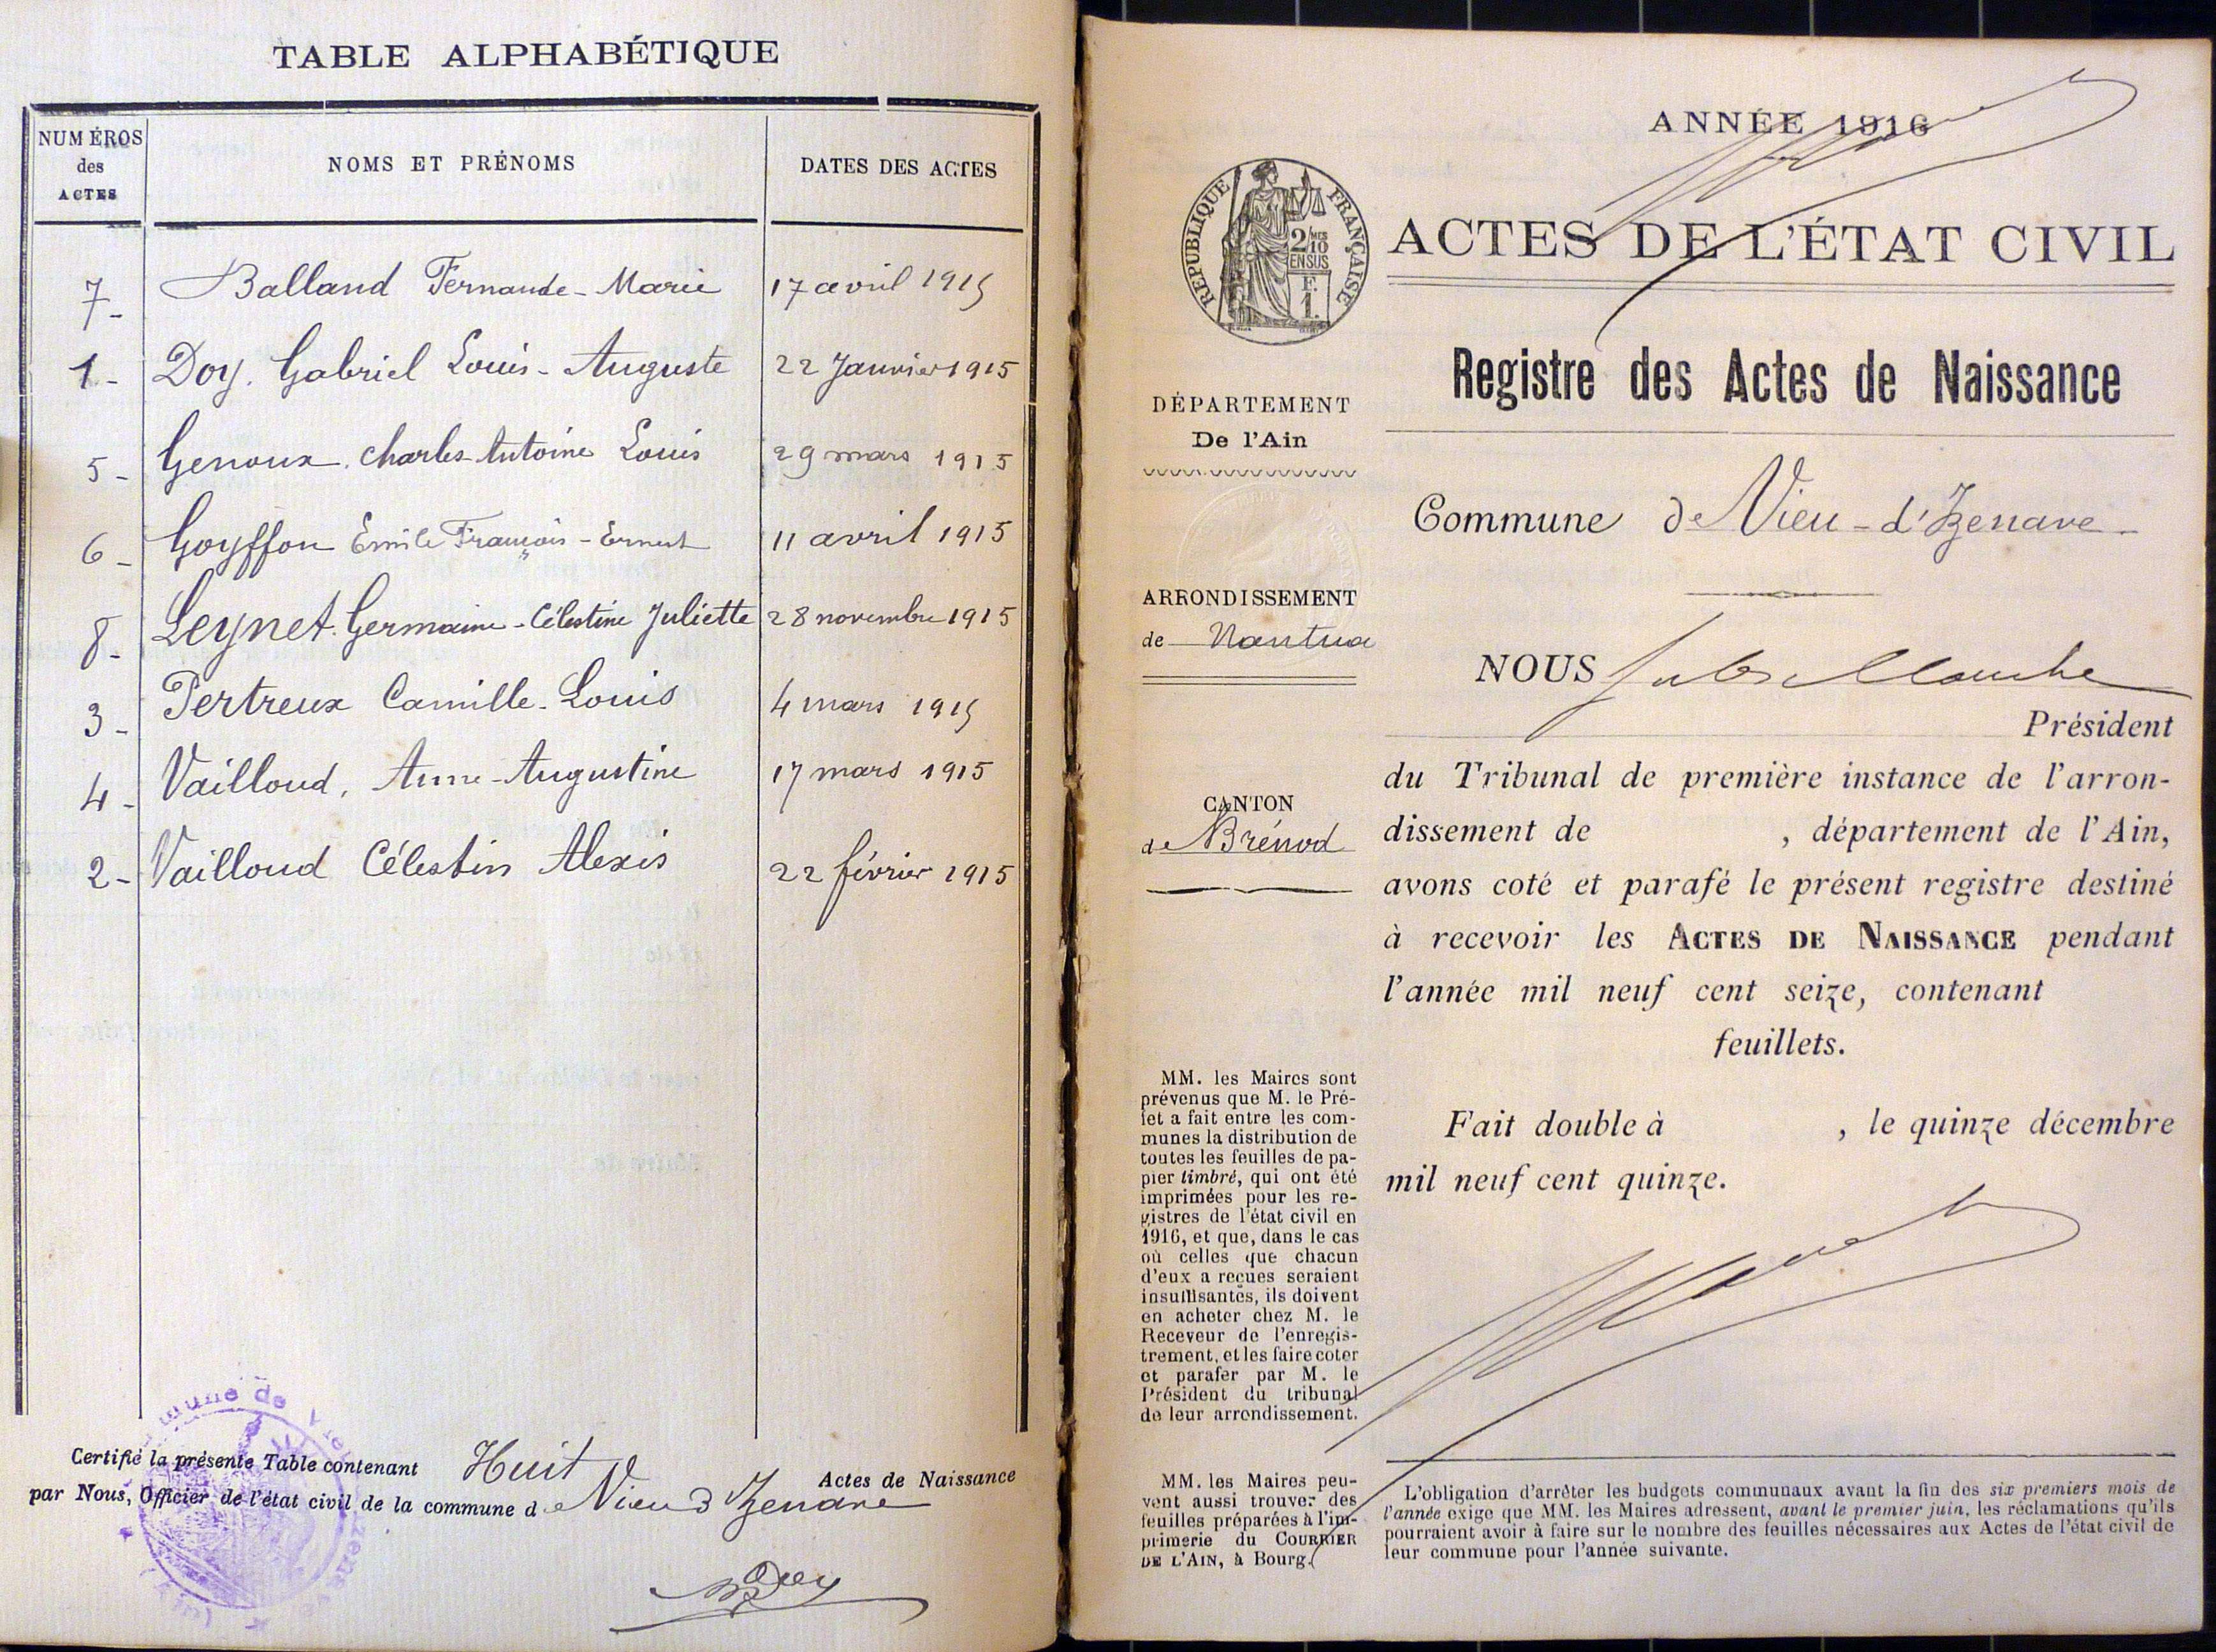 TABLE ALPHABÉTIQUE
NUMÉROS des ACTES
NOMS ET PRÉNOMS
DATES DES ACTES
7- Balland Fernande-Marie 17 avril 1915
1- Doy. Gabriel Louis-Auguste 22 Janvier 1915
5- Genoux. Charles-Antoine Louis 29 mars 1915
6- Goyffon Emile François-Ernest 11 avril 1915
8- Leynet. Germaine-Célestine Juliette 28 novembre 1915
3- Pertreux Camille-Louis 4 mars 1915
4- Vailloud, Anne-Augustine 17 mars 1915
2- Vailloud Célestin Alexis 22 février 1915
Certifié la présente Table contenant Huit Actes de Naissance
par Nous, Officier de l'état civil de la commune de Vieu d'Izenave
Doy
ANNÉE 1916
RÉPUBLIQUE FRANÇAISE
2/10 MES
EN SUS
F.
1.
ACTES DE L'ÉTAT CIVIL
Registre des Actes de Naissance
DÉPARTEMENT
De l'Ain
Commune de Vieu-d'Izenave
ARRONDISSEMENT
de Nantua
CANTON
de Brénod
NOUS Jules
Président
du Tribunal de première instance de l'arron-
dissement de , département de l'Ain,
avons coté et parafé le présent registre destiné
à recevoir les ACTES DE NAISSANCE pendant
l'année mil neuf cent seize, contenant
feuillets.
Fait double à , le quinze décembre
mil neuf cent quinze.
MM. les Maires sont
prévenus que M. le Pré-
fet a fait entre les com-
munes la distribution de
toutes les feuilles de pa-
pier timbré, qui ont été
imprimées pour les re-
gistres de l'état civil en
1916, et que, dans le cas
où celles que chacun
d'eux a reçues seraient
insuffisantes, ils doivent
en acheter chez M. le
Receveur de l'enregis-
trement, et les faire coter
et parafer par M. le
Président du tribunal
de leur arrondissement.
MM. les Maires peu-
vent aussi trouver des
feuilles préparées à l'im-
primerie du COURRIER
DE L'AIN, à Bourg.
L'obligation d'arrêter les budgets communaux avant la fin des six premiers mois de
l'année exige que MM. les Maires adressent, avant le premier juin, les réclamations qu'ils
pourraient avoir à faire sur le nombre des feuilles nécessaires aux Actes de l'état civil de
leur commune pour l'année suivante.